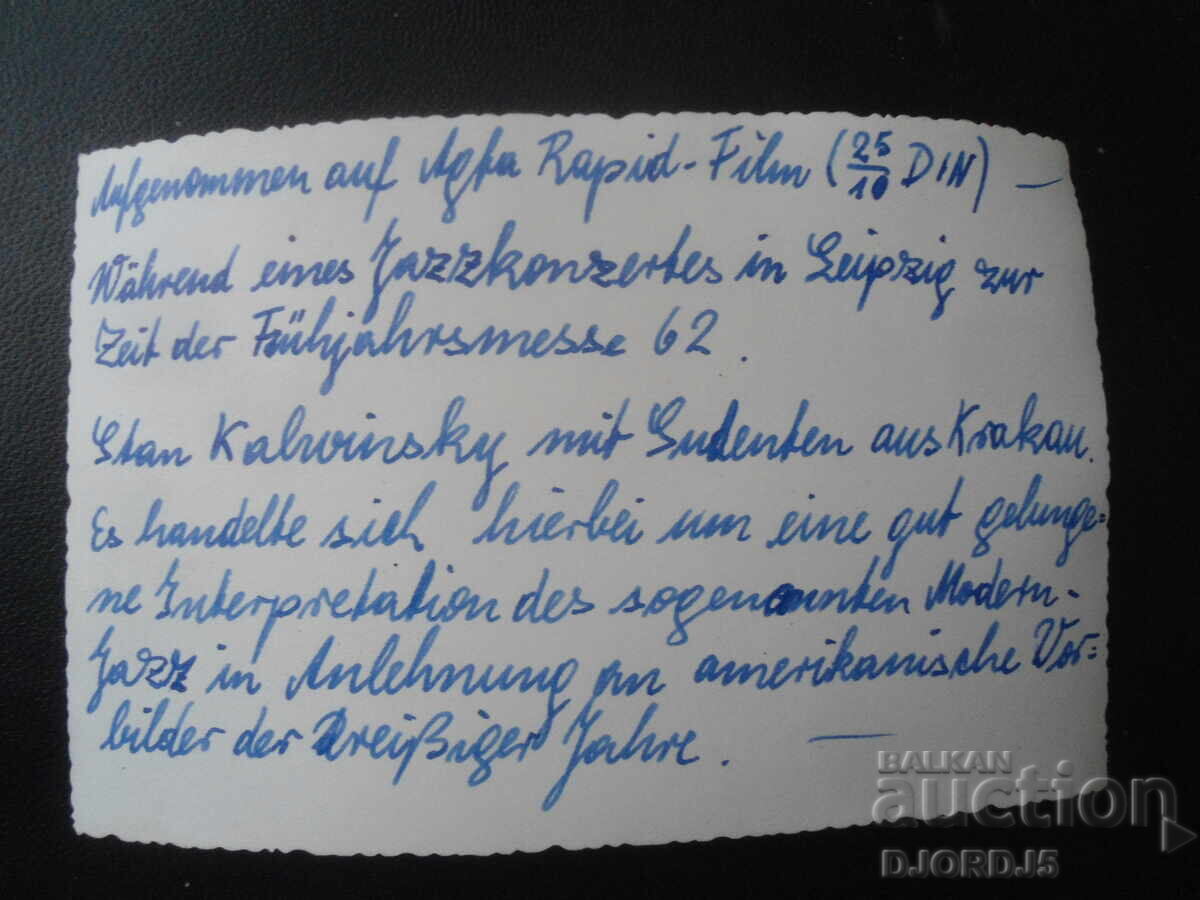 Aufgenommen auf Agfa Rapid-Film (25/10 DIN) —
Während eines Jazzkonzertes in Leipzig zur
Zeit der Frühjahrsmesse 62.
Stan Kalwinsky mit Sudenten aus Krakau.
Es handelte sich hierbei um eine gut gelunge=
ne Interpretation des sogenannten Modern-
Jazz in Anlehnung an amerikanische Vor=
bilder der Dreißiger Jahre. —
BALKAN
auction
DJORDJ5